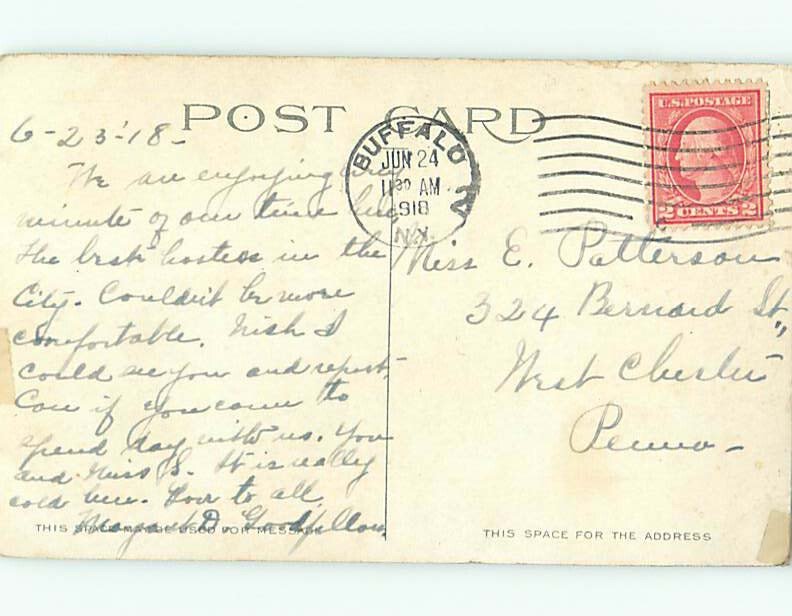 POST CARD
6-23-'18-
We are enjoying
minute of our time
the best hostess in the
City. Couldn't be more
comfortable. Wish I
could see you and
Can if you come to
spend day with us. You
and Miss S. It is really
cold here. Love to all,
Margaret D. Goodfellow
THIS SPACE MAY BE USED FOR MESSAGE
BUFFALO
JUN 24
11 30 AM
1918
N.Y.
U.S. POSTAGE
2 CENTS 2
Miss E. Patterson
324 Bernard St.,
West Chester
Penna-
THIS SPACE FOR THE ADDRESS